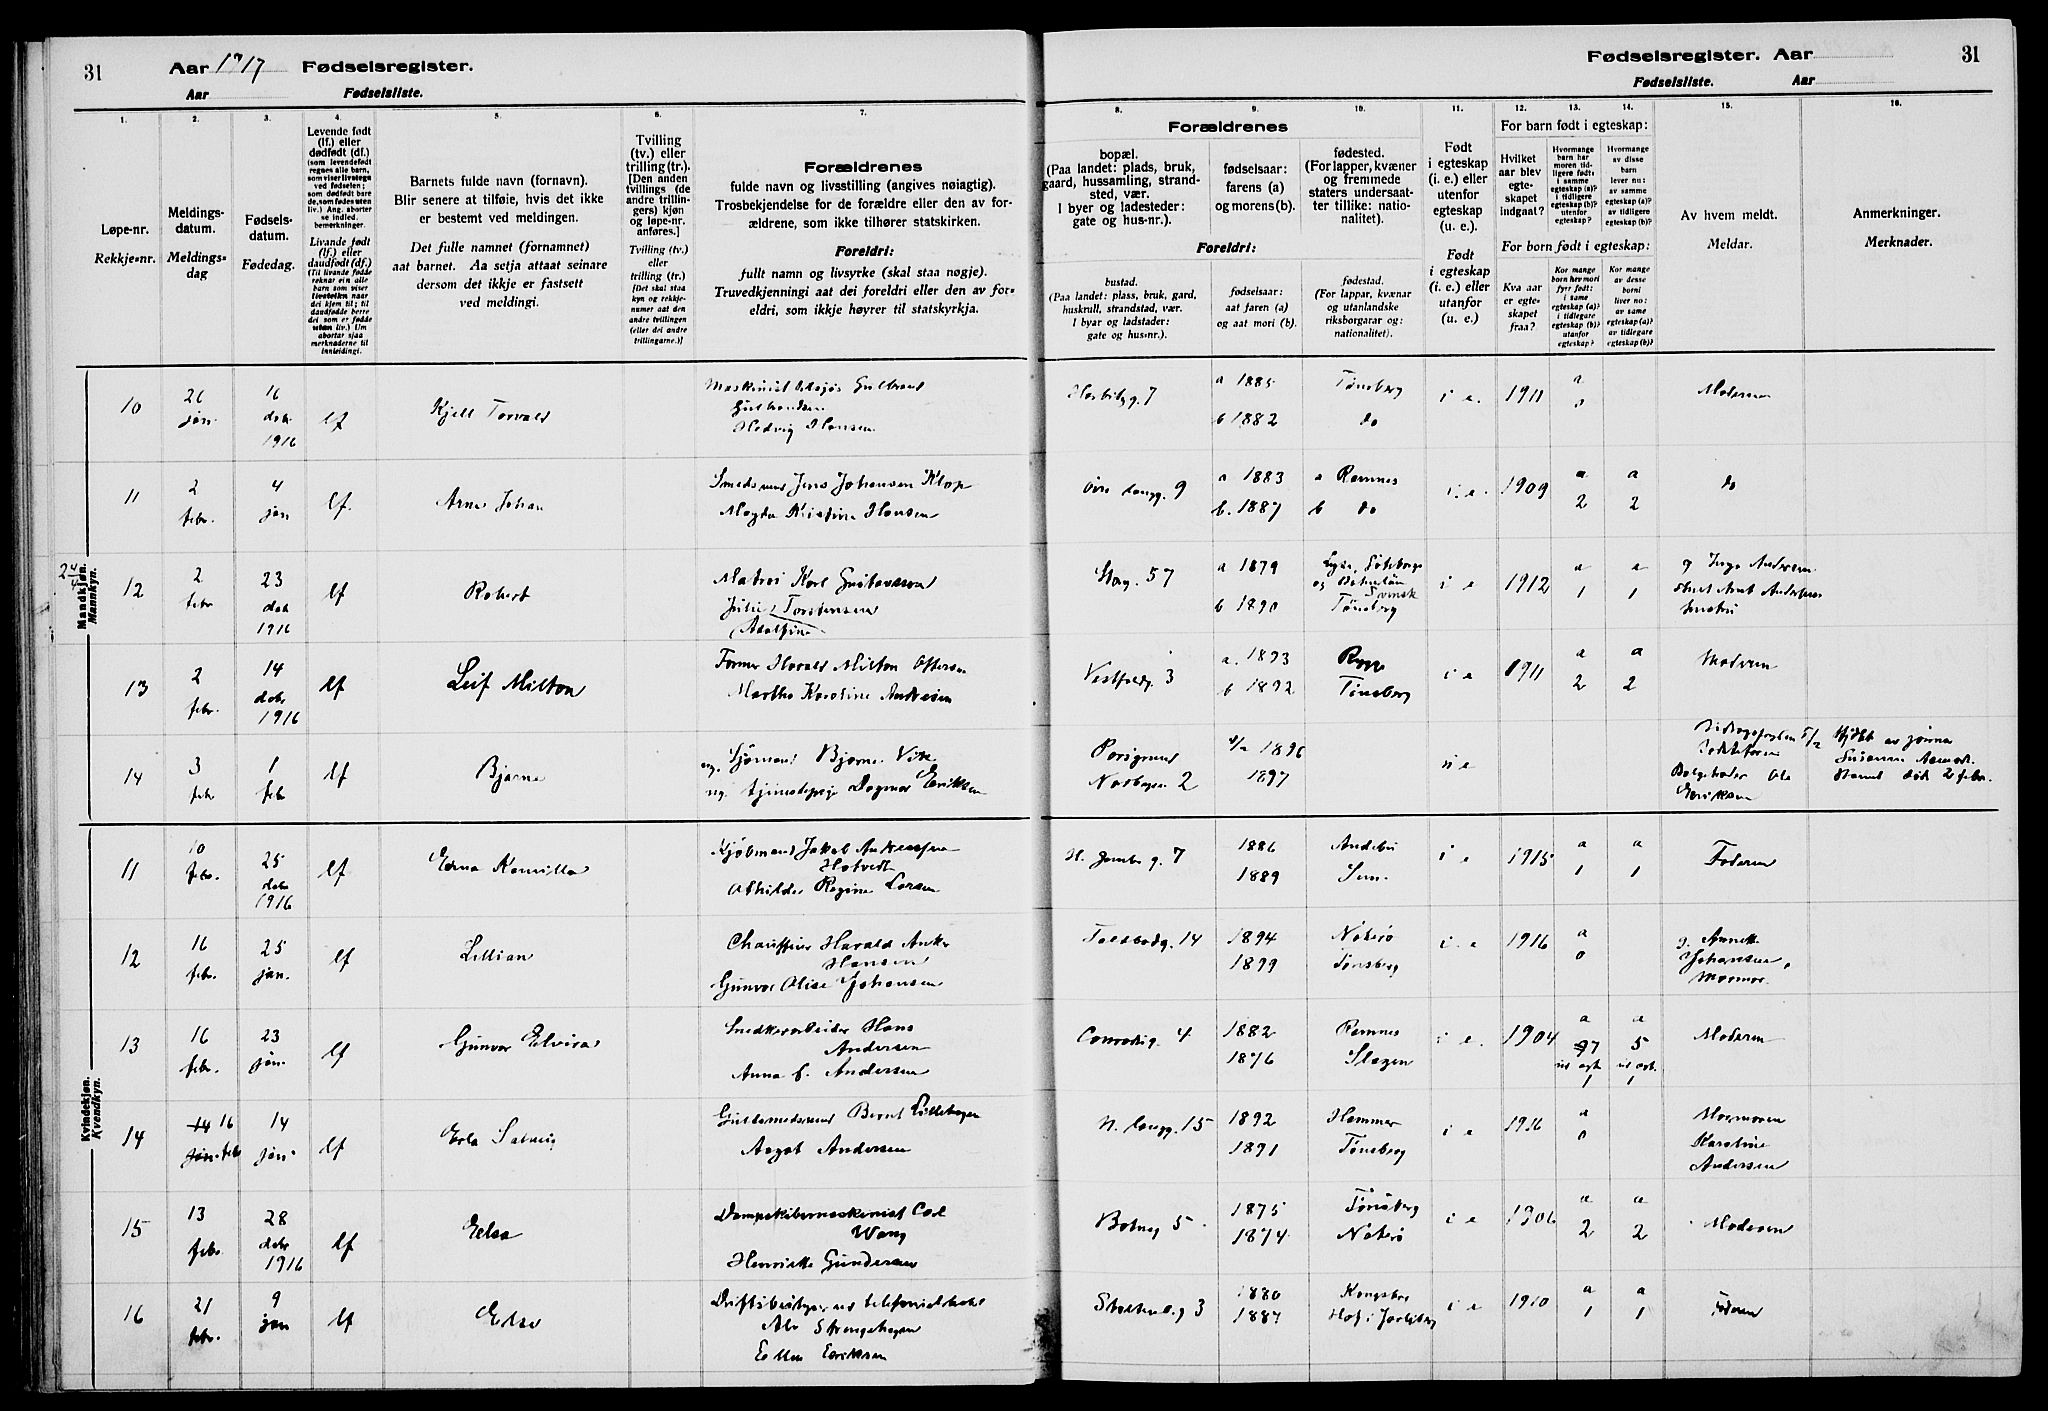 31 Aar 1917 Fødselsregister.
Aar Fødselsliste.
Fødselsregister. Aar 31
Fødselsliste. Aar
1. 2. 3. 4. 5. 6. 7.
8. 9. 10. 11. 12. 13. 14. 15. 16.
Løpe-nr.
Rekkje-nr.
Meldings-
datum.
Meldings-
dag
Fødsels-
datum.
Fødedag.
Levende født
(lf.) eller
dødfødt (df.)
(som levendefødt
regnes alle barn,
som viser livstegn
ved fødselen;
som dødfødt bare
de, som fødes uten
liv.) Ang. aborter
se indled.
bemerkninger.
Livande født
(lf.) eller
daudfødt (df.)
(Til livande fødde
reknar ein alle
barn som viser
livsteikn naar
dei kjem til; til
daudfødde berre
dei som er fødde
utan liv.) Um
abortar sjaa
merknaderne til
innleidingi.
Barnets fulde navn (fornavn).
Blir senere at tilføie, hvis det ikke
er bestemt ved meldingen.
Det fulle namnet (fornamnet)
aat barnet. Aa setja attaat seinare
dersom det ikkje er fastsett
ved meldingi.
Tvilling
(tv.) eller
trilling (tr.).
[Den anden
tvillings (de
andre trillin-
gers) kjøn
og løpe-nr.
anføres.]
Tvilling (tv.)
eller
trilling (tr.)
[Det skal staa
kyn og rekkje-
numer aat den
andre tvillingen
(eller dei andre
trillingarne.)]
Forældrenes
fulde navn og livsstilling (angives nøiagtig).
Trosbekjendelse for de forældre eller den av for-
ældrene, som ikke tilhører statskirken.
Foreldri:
fullt namn og livsyrke (skal staa nøgje).
Truvedkjenningi aat dei foreldri eller den av for-
eldri, som ikkje høyrer til statskyrkja.
Forældrenes
bopæl.
(Paa landet: plads, bruk,
gaard, hussamling, strand-
sted, vær.
I byer og ladesteder:
gate og hus-nr.).
fødselsaar:
farens (a)
og morens (b).
fødested.
(For lapper, kvæner
og fremmede
staters undersaat-
ter tillike: natio-
nalitet).
Foreldri:
bustad.
(Paa landet: plass, bruk, gard,
huskrull, strandstad, vær.
I byar og ladstader:
gate og hus-nr.).
fødselsaar:
aat faren (a)
og aat mori (b).
fødestad.
(For lappar, kvænar
og utanlandske
riksborgarar og:
nationalitet).
Født
i egteskap
(i. e.) eller
utenfor
egteskap
(u. e.).
Født
i egteskap
(i. e.) eller
utanfor
(u. e.)
For barn født i egteskap:
Hvilket
aar blev
egte-
skapet
indgaat?
Hvormange
barn har
moren tid-
ligere født:
i samme
egteskap (a)?
i tidligere
egteskap (b)?
utenfor
egteskap?
Hvormange
av disse
barn
lever nu:
av samme
egteskap (a)?
av tidligere
egteskap (b)?
For born født i egteskap:
Kva aar
er egte-
skapet
fraa?
Kor mange
born hev mori
fyrr født:
i same
egteskap (a)?
i tidlegare
egteskap (b)?
utanfor
egteskap?
Kor mange
av desse
borni
liver no:
av same
egteskap (a)?
av tidlegare
egteskap (b)?
Av hvem meldt.
Meldar.
Anmerkninger.
Merknader.
Mandkjøn.
Mannkyn.
10 jan. 16 desbr 1916 lf Kjell Torvald
Hedvig Hansen
7 a 1885 b 1882 Tønsberg do i e. 1911 a 0 Moderen
11 2 febr. 4 jan lf. Arne Johan
Smedsvend Jens Johansen Klop
Magda Kristine Hansen
Øvre Langg. 9 a 1883 b. 1887 a Ramnes b do i. e. 1909 a 2 a 2 do
12 2 febr 23 des 1916 lf Robert
Matros Karl Gustavsson
Julie Torstensen
(Adolfine
Storg. 57 a 1879 b 1890 Svensk Tønsberg i e 1912 a 1 a 1
13 2 febr. 14 desbr 1916 lf Leif Milton
Former Harald Milton Ottersen
Martha Karoline Andresen
Vestfoldg. 3 a. 1893 b 1892 Tønsberg i e 1911 a 2 a 2 Moderen
14 3 febr 1 feb lf Bjarne
ug. Sjømand Bjarne Vik
ug. tjenestepige Dagmar Eriksen
Porsgrund
Norbyen 2 1896 1897 u e
Ole
Eriksen
2 febr.
Kvindekjøn.
Kvendkyn.
11 10 febr. 25 desbr 1916 lf Edna Kamilla
Kjøbmand Jakob Andreassen
Hotvedt
Regine Larsen
7 1886 1889 Andebu Sem i e 1915 a 1 a 1 Faderen
12 16 febr. 25 jan. lf Lillian
Chauffør Harald Anker
Hansen
Gunvor Olise Johansen
Toldbodg. 14 1894 1899 Nøterø Tønsberg i. e 1916 a 0
Johansen,
Mormor.
13 16 febr. 23 jan. lf Gunvor Elvira
Snedkerarbeider Hans
Andersen
Anna C. Andersen
Conradig. 4 1882 1876 Ramnes Slagen i e. 1904 a 7 1 a 5 1 Moderen
14 16 febr 14 jan. lf Erla Solveig
Guldsmedsvend Bernt Lillehagen
Aagot Andersen
N. Langg. 15 1892 1891 Hammer Tønsberg i e 1916 a 0
Mormoren
Karoline
Andersen
15 13 febr. 28 desbr 1916 lf Elsa
Dampskibsmaskinist Carl
Wang
Henriette Gundersen
5 1875 1874. Tønsberg Nøterø i e 1906 a 2 a 2 Moderen
16 21 febr. 9 jan lf Else
Driftsbestyrer ved telefonselskabet
Alv Strengehagen
Ellen Eriksen
Stoltenbg 3 1880 1887 Kongsberg Hof i Jarlsberg i e 1910 a 1 a 1 Faderen